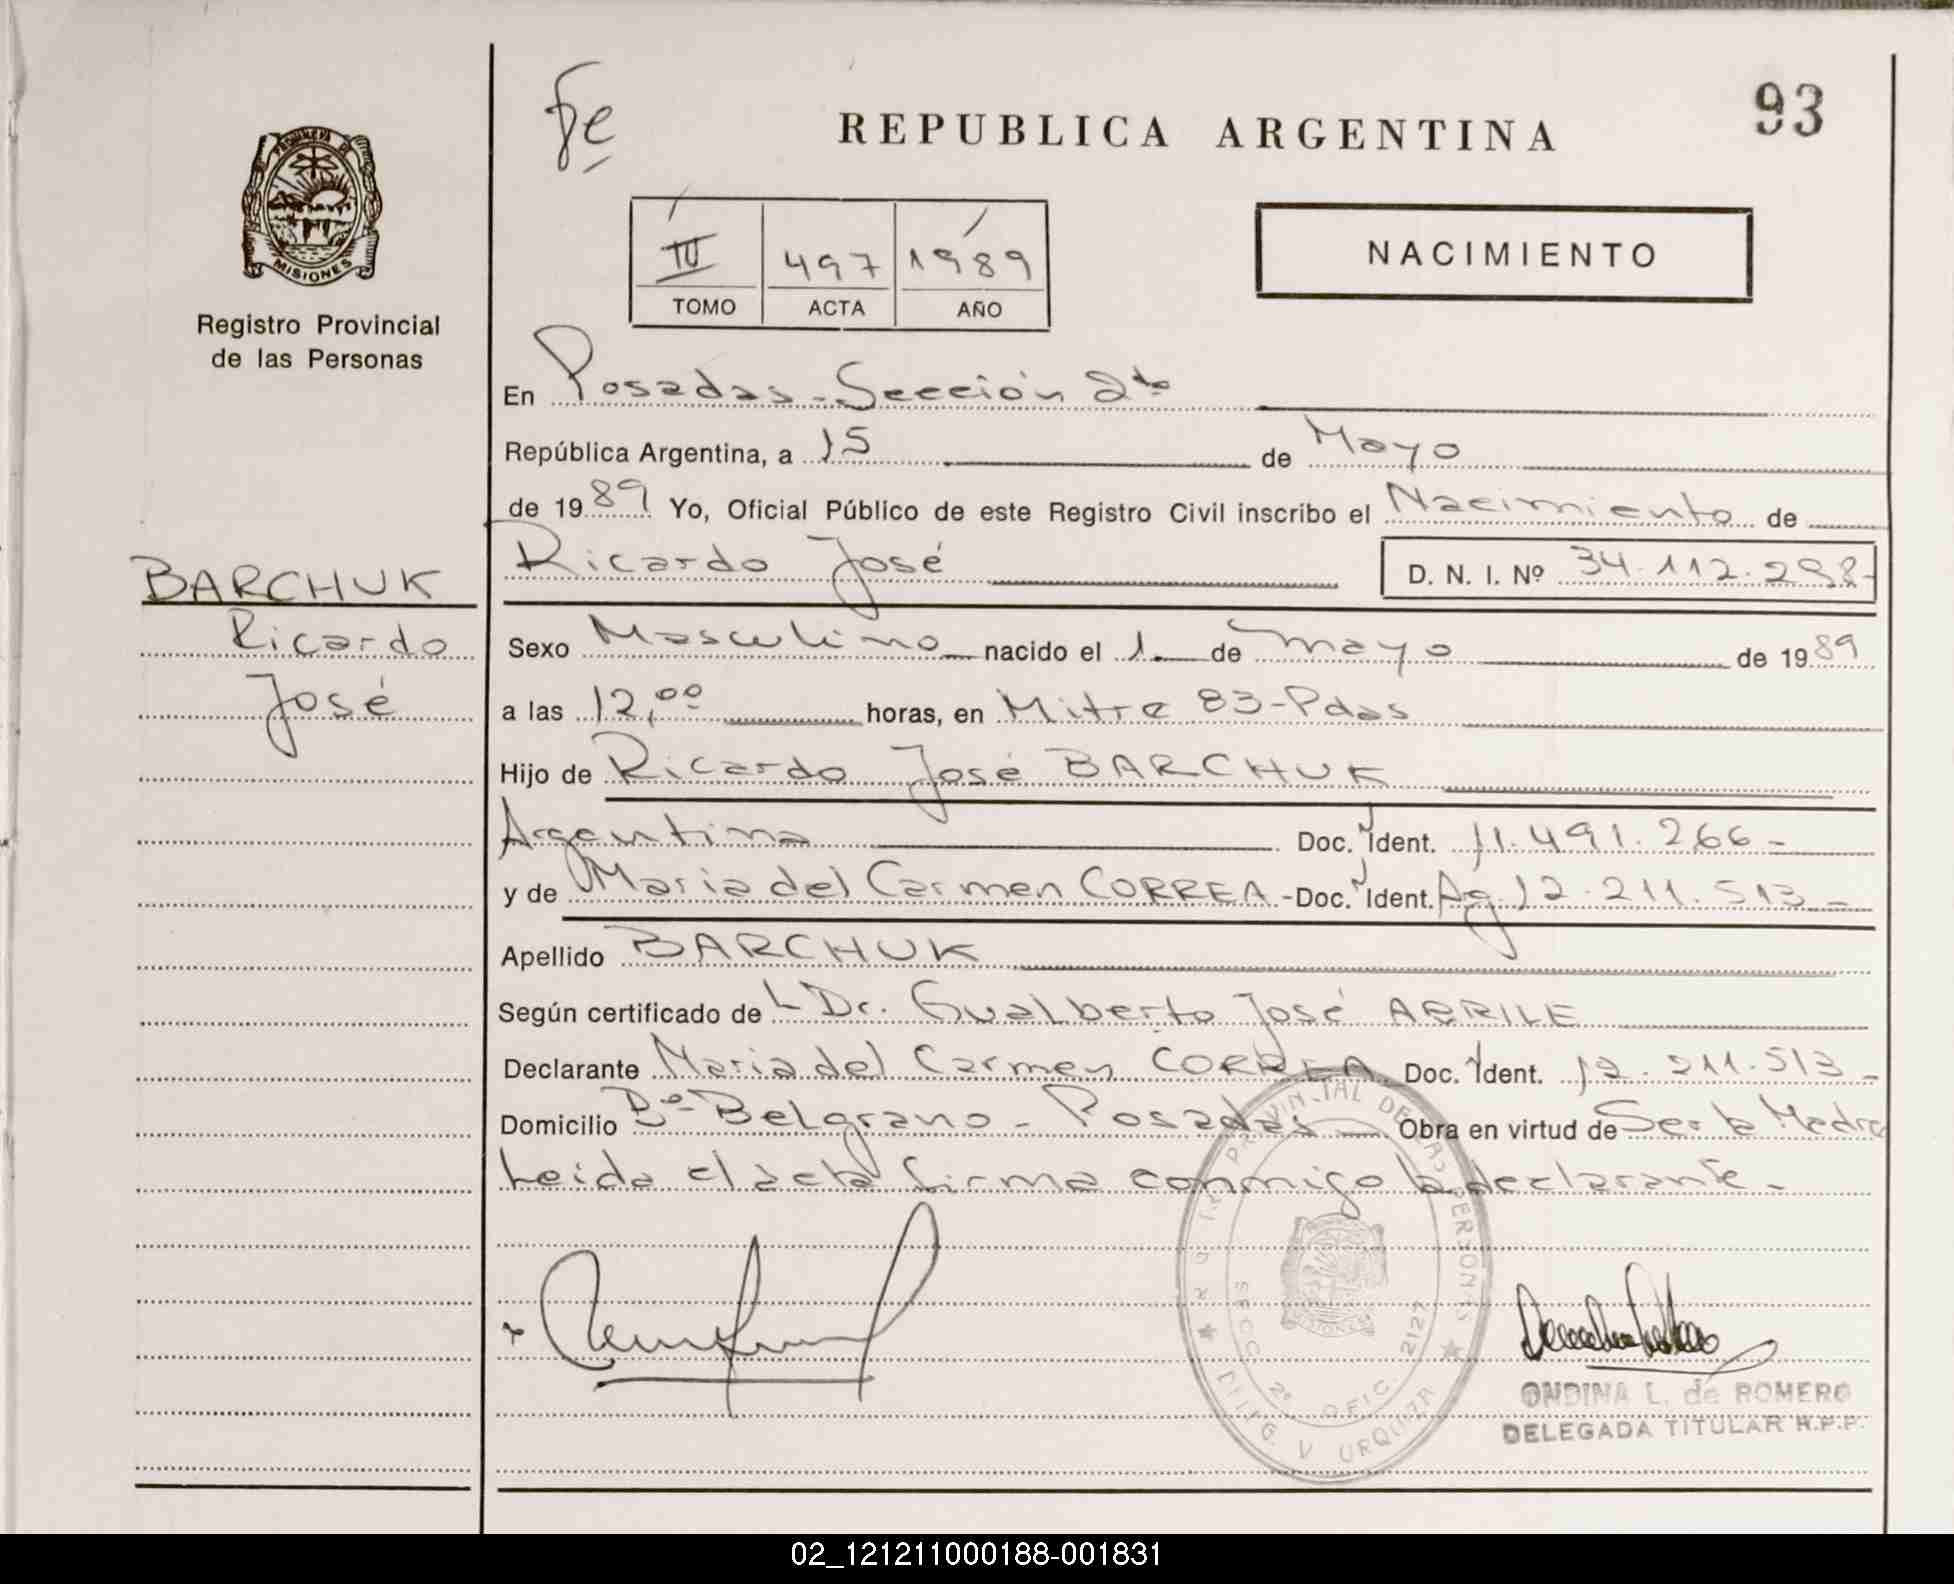 fe
REPUBLICA ARGENTINA
93
PROVINCIA DE
MISIONES
Registro Provincial
de las Personas
497 1989
TOMO ACTA AÑO
NACIMIENTO
En Posadas-Sección 2da
República Argentina, a 15 de Mayo
de 1989 Yo, Oficial Público de este Registro Civil inscribo el Nacimiento de
BARCHUK
Ricardo
José
Ricardo José D. N. I. Nº 34.112.298-
Sexo Masculino nacido el 1. de mayo de 1989
a las 12,00 horas, en Mitre 83-Pdas
Hijo de Ricardo José BARCHUK
Argentina Doc. Ident. 11.491.266-
y de Maria del Carmen CORREA-Doc. Ident. Ag. 12.211.513-
Apellido BARCHUK
Según certificado de L Dr. Gualberto José ABRILE
Declarante Maria del Carmen CORREA Doc. Ident. 12.211.513-
Domicilio Bº-Belgrano - Posadas Obra en virtud de Ser la Madre
Leida el acta firma conmigo la declarante.-
PROVINCIAL DE LAS PERSONAS
SECC. 2º OFIC. 2127
V URQUIZA
MISIONES
ONDINA L. de ROMERO
DELEGADA TITULAR R.P.P.
02_121211000188-001831